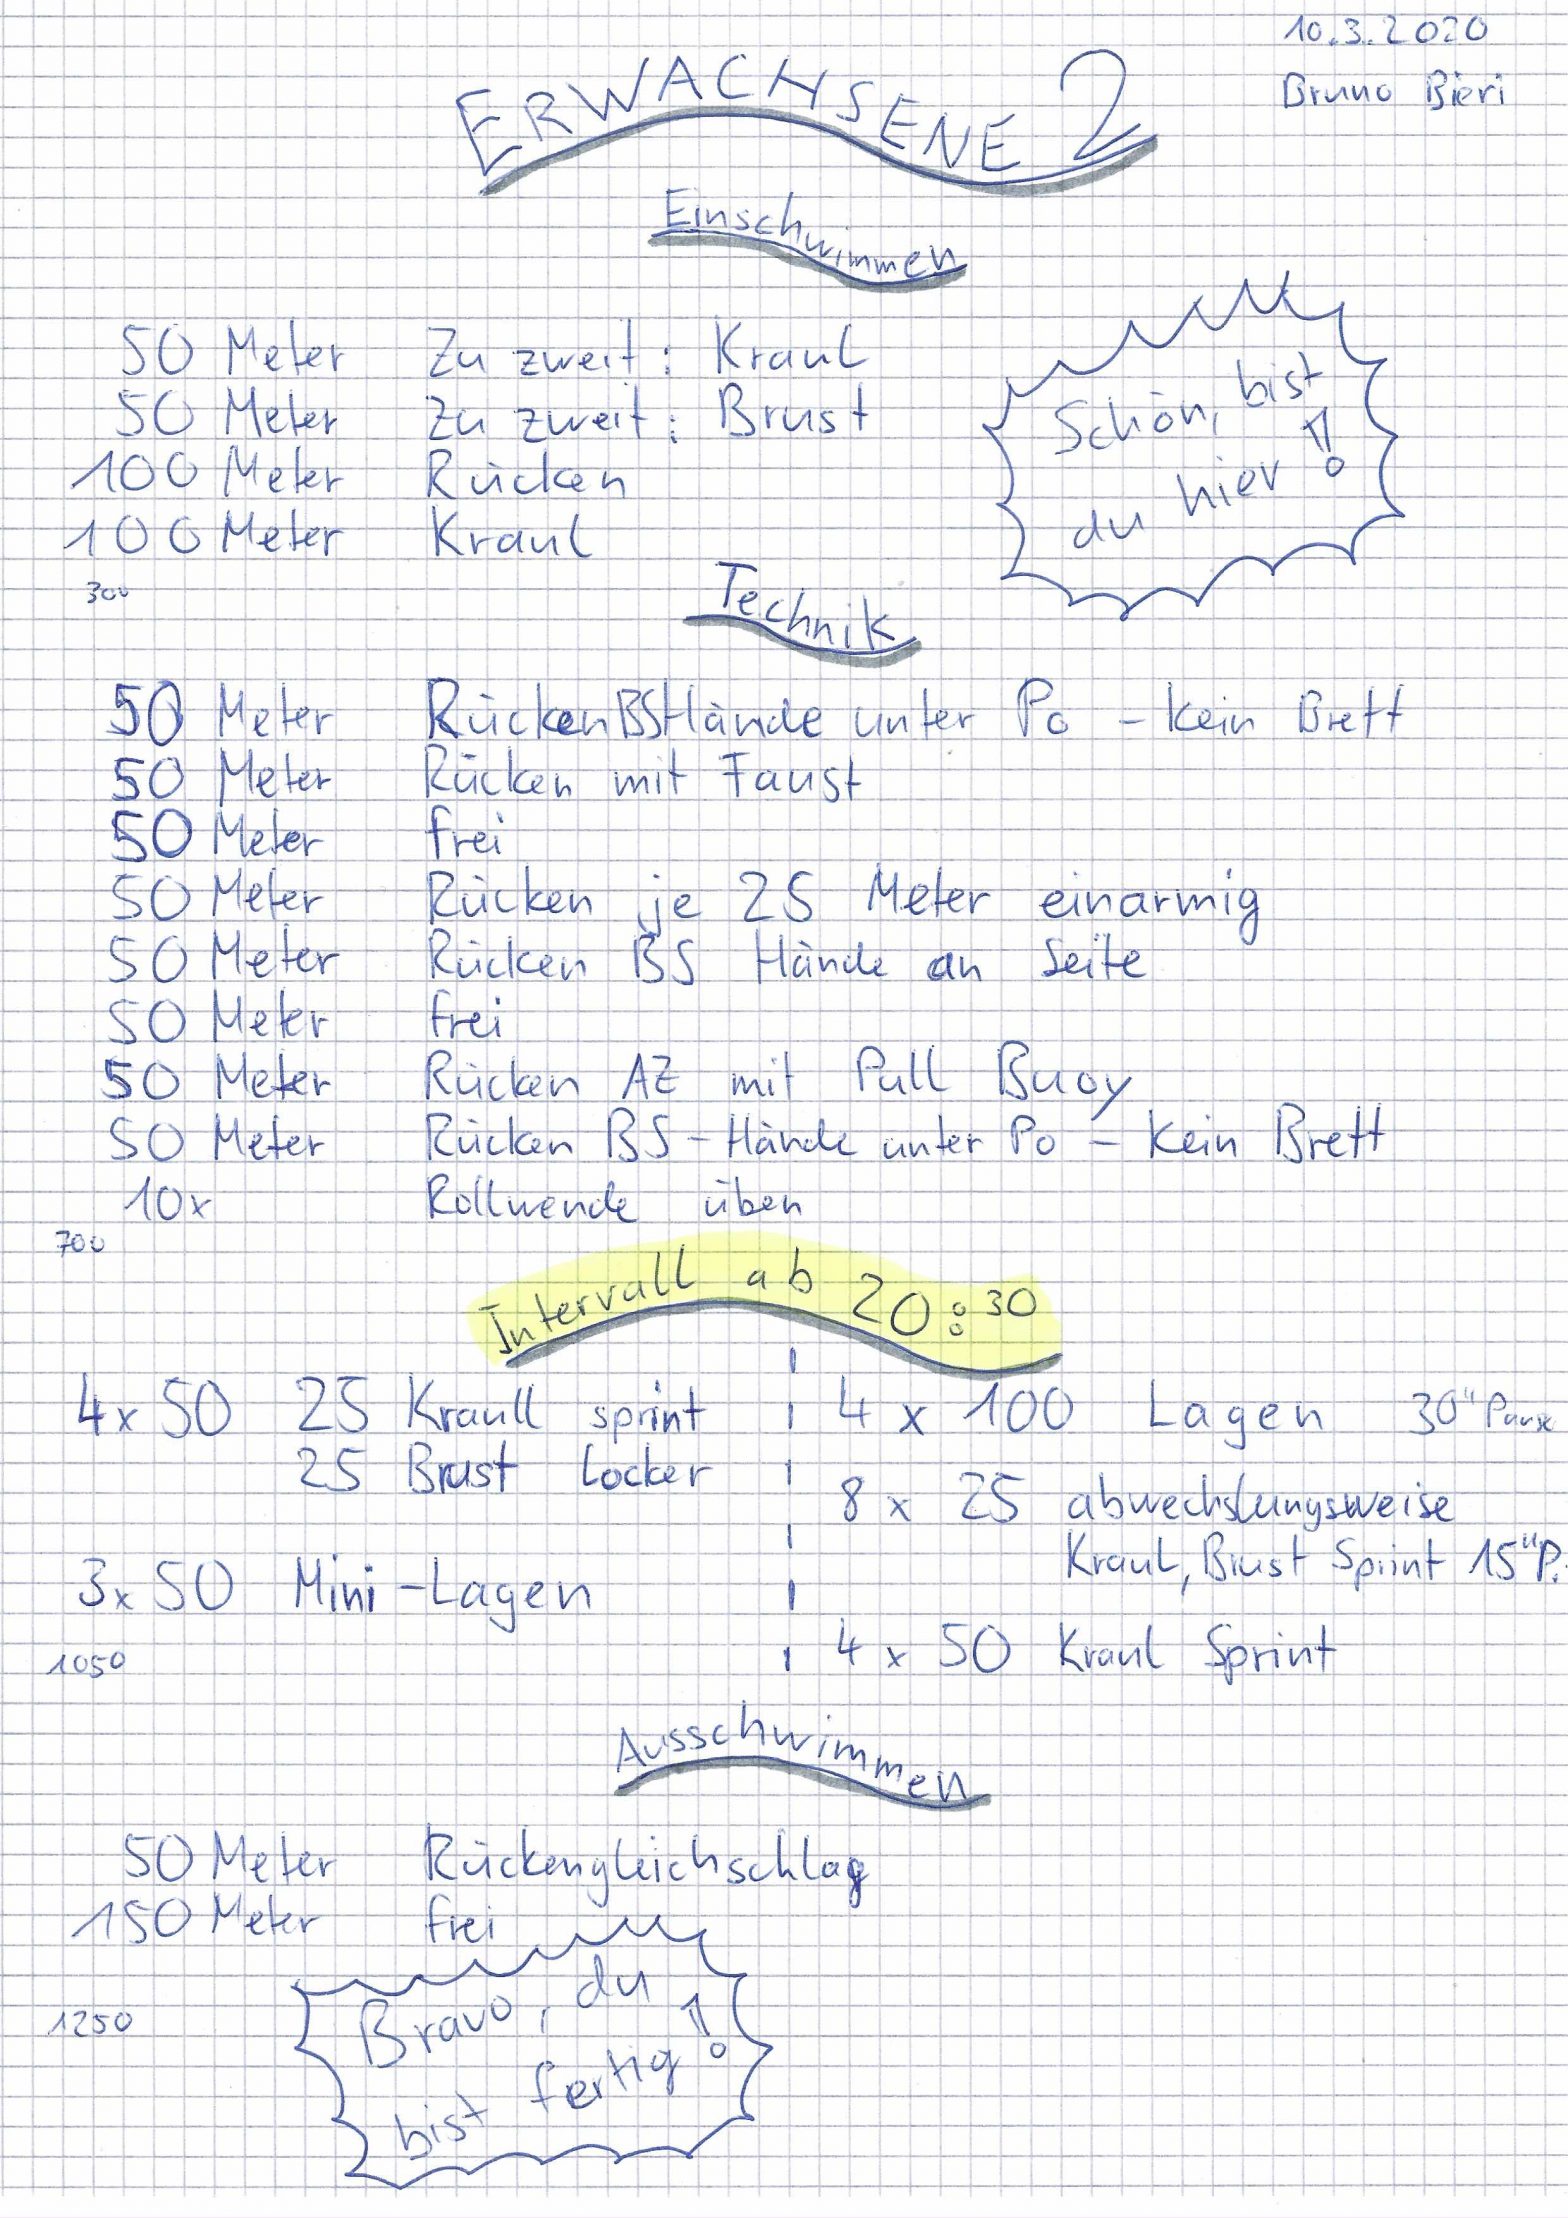 10.3.2020
Bruno Bieri
ERWACHSENE 2
Einschwimmen
50 Meter Zu zweit: Kraul
50 Meter Zu zweit: Brust
100 Meter Rücken
100 Meter Kraul
Schön, bist
du hier!
300
Technik
50 Meter Rücken BS Hände unter Po - Kein Brett
50 Meter Rücken mit Faust
50 Meter frei
50 Meter Rücken je 25 Meter einarmig
50 Meter Rücken BS Hände an Seite
50 Meter frei
50 Meter Rücken AZ mit Pull Buoy
50 Meter Rücken BS - Hände unter Po - Kein Brett
10x Rollwende üben
700
Intervall ab 20:30
4x 50 25 Kraull sprint
25 Brust locker
3x 50 Mini-Lagen
1050
4 x 100 Lagen 30" Pause
8 x 25 abwechslungsweise
Kraul, Brust Sprint 15" P.
4 x 50 Kraul Sprint
Ausschwimmen
50 Meter Rückengleichschlag
150 Meter frei
1250
Bravo, du
bist fertig!